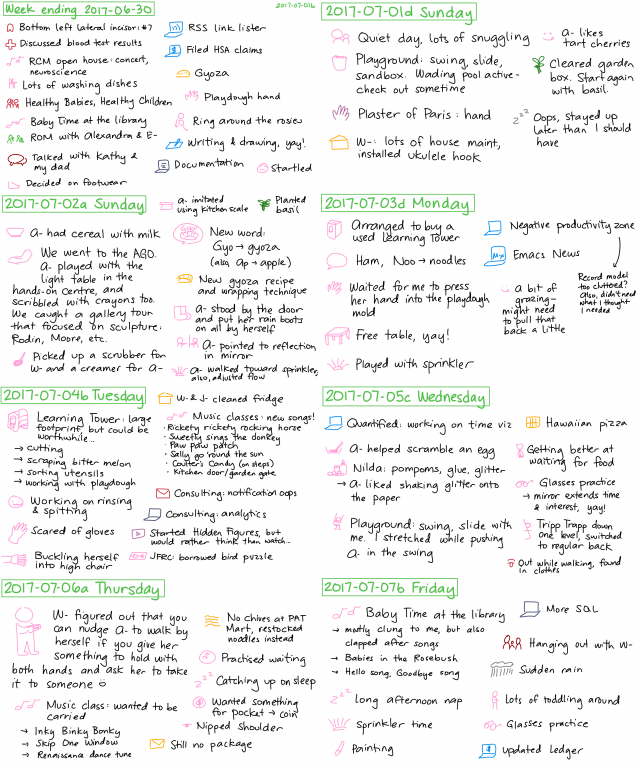 Week ending 2017-06-30
2017-07-01b
Bottom left lateral incisor: #7
Discussed blood test results
RCM open house: concert,
neuroscience
Lots of washing dishes
Healthy Babies, Healthy Children
Baby Time at the library
ROM with Alexandra & E-
Talked with Kathy &
my dad
Decided on footwear
RSS link lister
Filed HSA claims
Gyoza
Playdough hand
Ring around the rosies
Writing & drawing, yay!
Documentation
Startled
2017-07-01d Sunday
Quiet day, lots of snuggling
Playground: swing, slide,
sandbox. Wading pool active-
check out sometime
Plaster of Paris: hand
W-: lots of house maint,
installed ukulele hook
A- likes
tart cherries
Cleared garden
box. Start again
with basil
zzz
Oops, stayed up
later than I should
have
2017-07-02a Sunday
A- had cereal with milk
We went to the AGO.
A- played with the
light table in the
hands-on centre, and
scribbled with crayons too.
We caught a gallery tour
that focused on sculpture:
Rodin, Moore, etc.
Picked up a scrubber for
W- and a creamer for A-
A- imitated
using kitchen scale
Planted
basil
New word:
Gyo → gyoza
(also, Ap → apple)
New gyoza recipe
and wrapping technique
A- stood by the door
and put her rain boots
on all by herself
A- pointed to reflection
in mirror
A- walked toward sprinkler,
also, adjusted flow
2017-07-03d Monday
Arranged to buy a
used Learning Tower
Ham, Noo → noodles
Waited for me to press
her hand into the playdough
mold
Free table, yay!
Played with sprinkler
Negative productivity zone
Emacs News
A bit of
grazing-
might need
to pull that
back a little
Record model
too cluttered?
Also, didn't need
what I thought
I needed
2017-07-04b Tuesday
Learning Tower: large
footprint, but could be
worthwhile...
→ cutting
→ scraping bitter melon
→ sorting utensils
→ working with playdough
Working on rinsing
& spitting
Scared of gloves
Buckling herself
into high chair
W- & J- cleaned fridge
Music classes: new songs!
· Rickety rickety rocking horse
· Sweetly sings the donkey
· Paw paw patch
· Sally go 'round the sun
· Coulter's Candy (on steps)
· Kitchen door/garden gate
Consulting: notification oops
Consulting: analytics
Started Hidden Figures, but
would rather think than watch...
JFRC: borrowed bird puzzle
2017-07-05c Wednesday
Quantified: working on time viz
A- helped scramble an egg
Nilda: pompoms, glue, glitter
→ A- liked shaking glitter onto
the paper
Playground: swing, slide with
me. I stretched while pushing
A- in the swing
Hawaiian pizza
Getting better at
waiting for food
Glasses practice
→ mirror extends time
& interest, yay!
Tripp Trapp down
one level, switched
to regular back
Out while walking, found
in clothes
2017-07-06a Thursday
W- figured out that you
can nudge A- to walk by
herself if you give her
something to hold with
both hands and ask her to take
it to someone
Music class: wanted to be
carried
→ Inky Binky Bonky
→ Skip One Window
→ Renaissance dance tune
No chives at PAT
Mart, restocked
noodles instead
Practised waiting
zzz
Catching up on sleep
Wanted something
for pocket → coin
Nipped shoulder
Still no package
2017-07-07b Friday
Baby Time at the library
→ mostly clung to me, but also
clapped after songs
→ Babies in the Rosebush
→ Hello song, Goodbye song
zzz
Long afternoon nap
Sprinkler time
Painting
More SQL
Hanging out with W-
Sudden rain
Lots of toddling around
Glasses practice
Updated Ledger